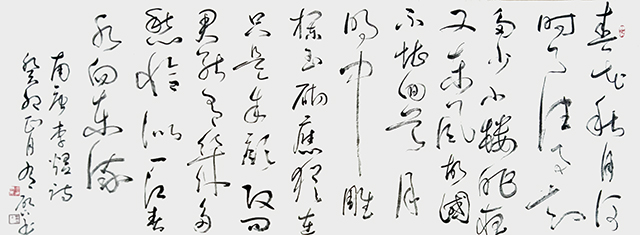 春花秋月何
时了往事知
多少小樓昨夜
又东风故國
不堪回首月
明中雕
栏玉砌應猶在
只是朱顔改问
君能有幾多
愁恰似一江春
水向东流
南唐李煜诗
癸卯正月